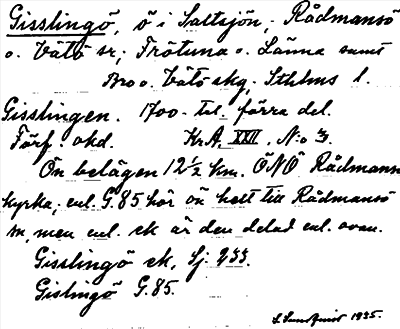 Gisslingö, ö i Saltsjön, Rådmansö
o. Vätö sr; Frötuna o. Länna samt
Bro o. Vätö skg, Sthlms l.
Gisslingen. 1700-tal. förra del.
Förf. okd. Kr.A. XXII. N:o 3.
Ön belägen 12½ km. ÖNÖ Rådmansö
kyrka, enl. G. 85 hör ön helt till Rådmansö
sn, men enl. ek är den delad enl. ovan.
Gisslingö ek, Sj. 233.
Gislingö G. 85.
1935.